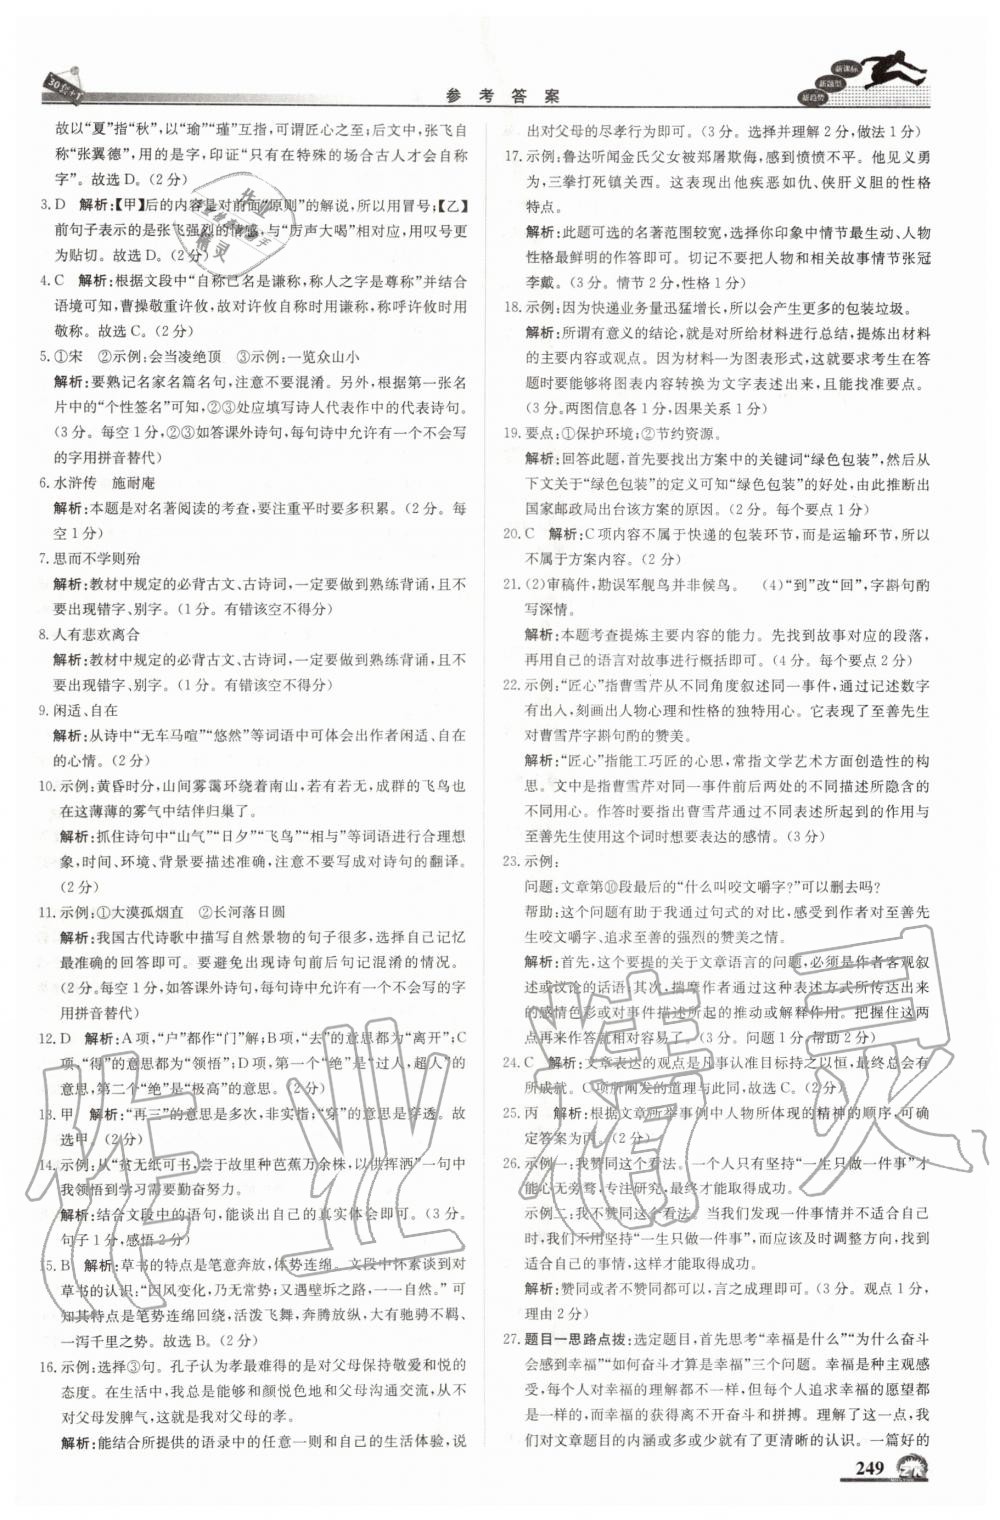 30套+1
参考答案
新课标
新题型
新趋势
故以“夏”指“秋”，以“瑜”“瑾”互指，可谓匠心之至；后文中，张飞自
称“张翼德”，用的是字，印证“只有在特殊的场合古人才会自称
字”。故选D。(2分)
3. D 解析:【甲】后的内容是对前面“原则”的解说，所以用冒号；【乙】
前句子表示的是张飞强烈的情感，与“厉声大喝”相对应，用叹号更
为贴切。故选D。(2分)
4. C 解析:根据文段中“自称己名是谦称，称人之字是尊称”并结合
语境可知，曹操敬重许攸，故对许攸自称时用谦称，称呼许攸时用
敬称。故选C。(2分)
5. ①宋 ②示例:会当凌绝顶 ③示例:一览众山小
解析:要熟记名家名篇名句，注意不要混淆。另外，根据第一张名
片中的“个性签名”可知，②③处应填写诗人代表作中的代表诗句。
(3分。每空1分，②③如答课外诗句，每句诗中允许有一个不会写
的字用拼音替代)
6. 水浒传 施耐庵
解析:本题是对名著阅读的考查，要注重平时要多积累。(2分。每
空1分)
7. 思而不学则殆
解析:教材中规定的必背古文、古诗词，一定要做到熟练背诵，且不
要出现错字、别字。(1分。有错该空不得分)
8. 人有悲欢离合
解析:教材中规定的必背古文、古诗词，一定要做到熟练背诵，且不
要出现错字、别字。(1分。有错该空不得分)
9. 闲适、自在
解析:从诗中“无车马喧”“悠然”等词语中可体会出作者闲适、自在
的心情。(2分)
10. 示例:黄昏时分，山间雾霭环绕着南山，若有若无，成群的飞鸟也
在这薄薄的雾气中结伴归巢了。
解析:抓住诗句中“山气”“日夕”“飞鸟”“相与”等词语进行合理想
象，时间、环境、背景要描述准确，注意不要写成对诗句的翻译。
(2分)
11. 示例:①大漠孤烟直 ②长河落日圆
解析:我国古代诗歌中描写自然景物的句子很多，选择自己记忆
最准确的回答即可。要避免出现诗句前后句记混淆的情况。
(2分。每空1分，如答课外诗句，每句诗中允许有一个不会写的字
用拼音替代)
12. D 解析:A项，“户”都作“门”解；B项，“去”的意思都为“离开”；C
项，“得”的意思都为“领悟”；D项，第一个“绝”是“过人，超人”的
意思，第二个“绝”是“极高”的意思。(2分)
13. 甲 解析:“再三”的意思是多次，非实指；“穿”的意思是穿透。故
选甲。(2分)
14. 示例:从“贫无纸可书，尝于故里种芭蕉万余株，以供挥洒”一句中
我领悟到学习需要勤奋努力。
解析:结合文段中的语句，能谈出自己的真实体会即可。(3分。
句子1分，感悟2分)
15. B 解析:草书的特点是笔意奔放，体势连绵。文段中怀素谈到对
草书的认识:“因风变化，乃无常势；又遇壁坼之路，一一自然。”可
知其特点是笔势连绵回绕，活泼飞舞，奔腾放纵，大有驰骋不羁、
一泻千里之势。故选B。(2分)
16. 示例:选择③句。孔子认为孝最难得的是对父母保持敬爱和悦的
态度。在生活中，我总是和颜悦色地和父母沟通交流，从不
对父母发脾气，这就是我对父母的孝。
解析:能结合所提供的语录中的任意一则和自己的生活体验，说
出对父母的尽孝行为即可。(3分。选择并理解2分，做法1分)
17. 示例:鲁达听闻金氏父女被郑屠欺侮，感到愤愤不平。他见义勇
为，三拳打死镇关西。这表现了他疾恶如仇、侠肝义胆的性格
特点。
解析:此题可选的名著范围较宽，选择你印象中情节最生动、人物
性格最鲜明的作答即可。切记不要把人物和相关故事情节张冠
李戴。(3分。情节2分，性格1分)
18. 示例:因为快递业务量迅猛增长，所以会产生更多的包装垃圾。
解析:所谓有意义的结论，就是对所给材料进行总结，提炼出材料
的主要内容或观点。因为材料一为图表形式，这就要求考生在答
题时要能够将图表内容转换为文字表述出来，且能找准要点。
(3分。两图信息各1分，因果关系1分)
19. 要点:①保护环境；②节约资源。
解析:回答此题，首先要找出方案中的关键词“绿色包装”，然后从
下文关于“绿色包装”的定义可知“绿色包装”的好处，由此推断出
国家邮政局出台该方案的原因。(2分。每个要点1分)
20. C 解析:C项内容不属于快递的包装环节，而是运输环节，所以
不属于方案内容。(2分)
21. (2)审稿件，勘误军舰鸟并非候鸟。 (4)“到”改“回”，字斟句酌
写深情。
解析:本题考查提炼主要内容的能力。先找到故事对应的段落，
再用自己的语言对故事进行概括即可。(4分。每个要点2分)
22. 示例:“匠心”指曹雪芹从不同角度叙述同一事件，通过记述数字
有出入，刻画出人物心理和性格的独特用心。它表现了至善先生
对曹雪芹字斟句酌的赞美。
解析:“匠心”指能工巧匠的心思，常指文学艺术方面创造性的构
思。文中是指曹雪芹对同一事件前后两处的不同描述所隐含的
不同用心。作答时要指出曹雪芹通过不同表述所起到的作用与
至善先生使用这个词时想要表达的感情。(3分)
23. 示例:
问题:文章第⑩段最后的“什么叫咬文嚼字?”可以删去吗?
帮助:这个问题有助于我通过句式的对比，感受到作者对至善先
生咬文嚼字、追求至善的强烈的赞美之情。
解析:首先，这个要提的关于文章语言的问题，必须是作者客观叙
述或议论的话语；其次，揣摩作者通过这种表述方式所传达出来
的感情色彩或对事件描述所起的推动或解释作用。把握住这两
点再来作答就相对容易了。(3分。问题1分，帮助2分)
24. C 解析:文章表达的观点是凡事认准目标持之以恒，最终总会有
所成就。C项所阐发的道理与此同，故选C。(2分)
25. 丙 解析:根据文章所举事例中人物所体现的精神的顺序，可确
定答案为丙。(2分)
26. 示例一:我赞同这个看法。一个人只有坚持“一生只做一件事”才
能心无旁骛，专注研究，最终才能取得成功。
示例二:我不赞同这个看法。当我们发现一件事情并不适合自己
时，我们不用坚持“一生只做一件事”，而应该及时调整方向，找到
适合自己的事情，这样也能取得成功。
解析:赞同或者不赞同都可以，言之成理即可。(3分。观点1分，
理由2分)
27. 题目一思路点拨:选定题目，首先思考“幸福是什么”“为什么奋斗
会感到幸福”“如何奋斗才算是幸福”三个问题。幸福是种主观感
受，每个人对幸福的理解都不一样，但每个人追求幸福的愿望都
是一样的，而幸福的获得离不开奋斗和拼搏。理解了这一点，我
们对文章题目的内涵或多或少就有了更清晰的认识。一篇好的
249
作业精灵